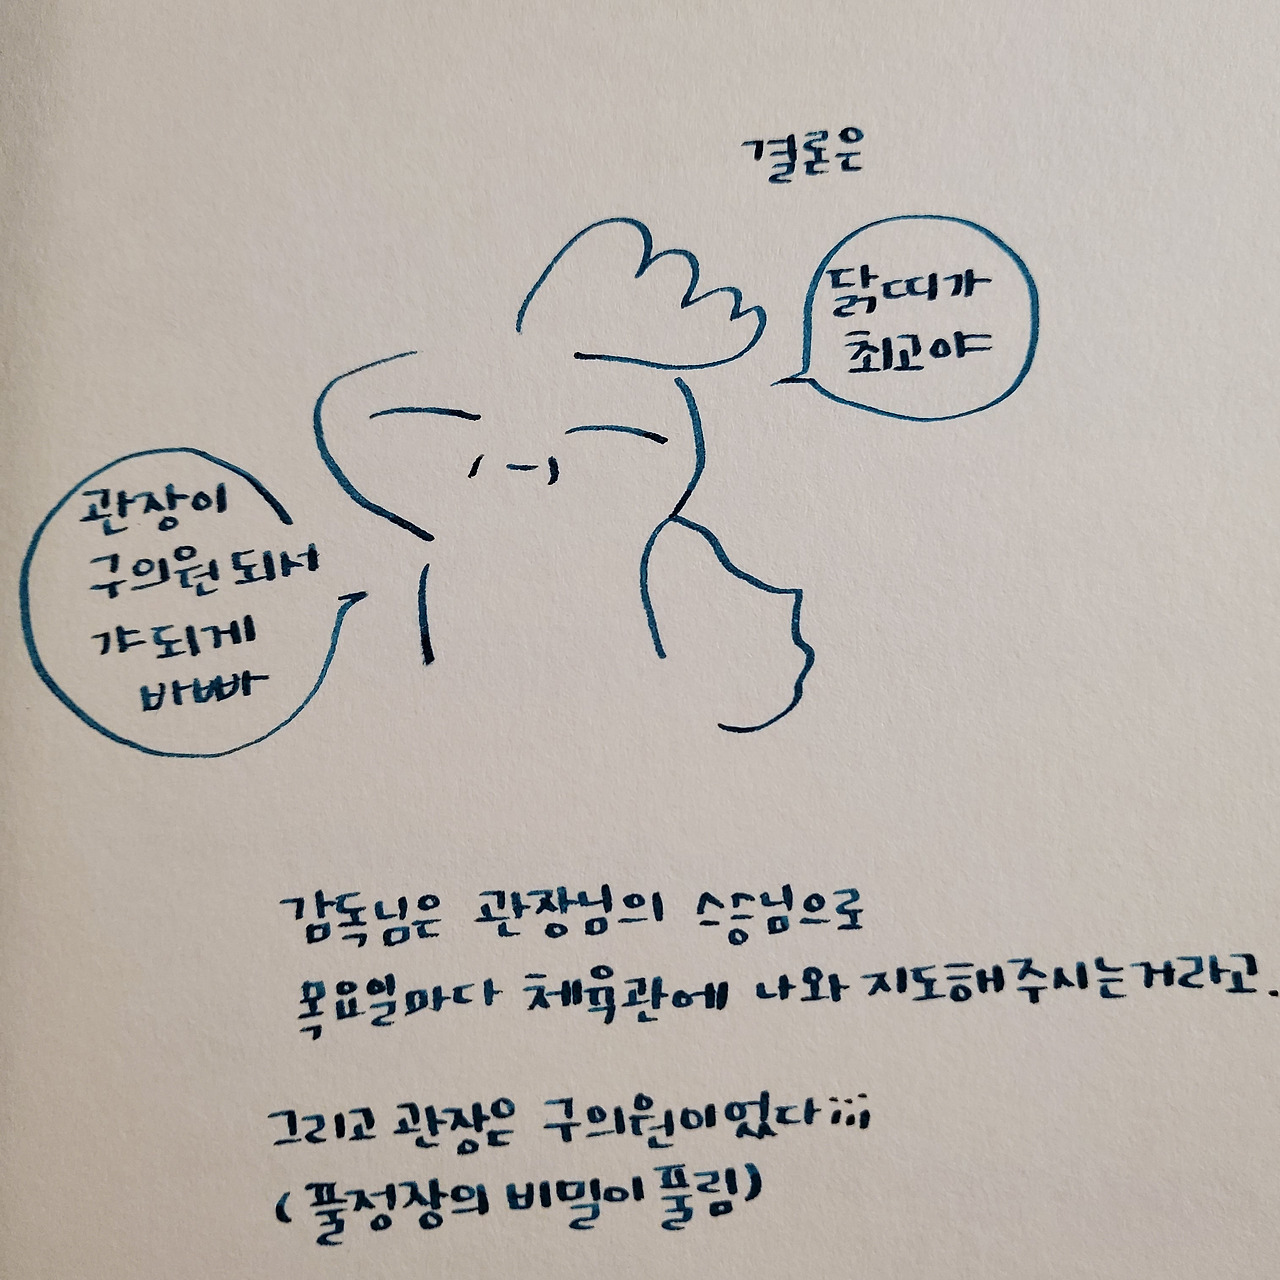 결론은
닭띠가
최고야
관장이
구의원 되서
갸 되게
바빠
감독님은 관장님의 스승님으로
목요일마다 체육관에 나와 지도해주시는거라고.
그리고 관장은 구의원이었다;;;
(풀정장의 비밀이 풀림)